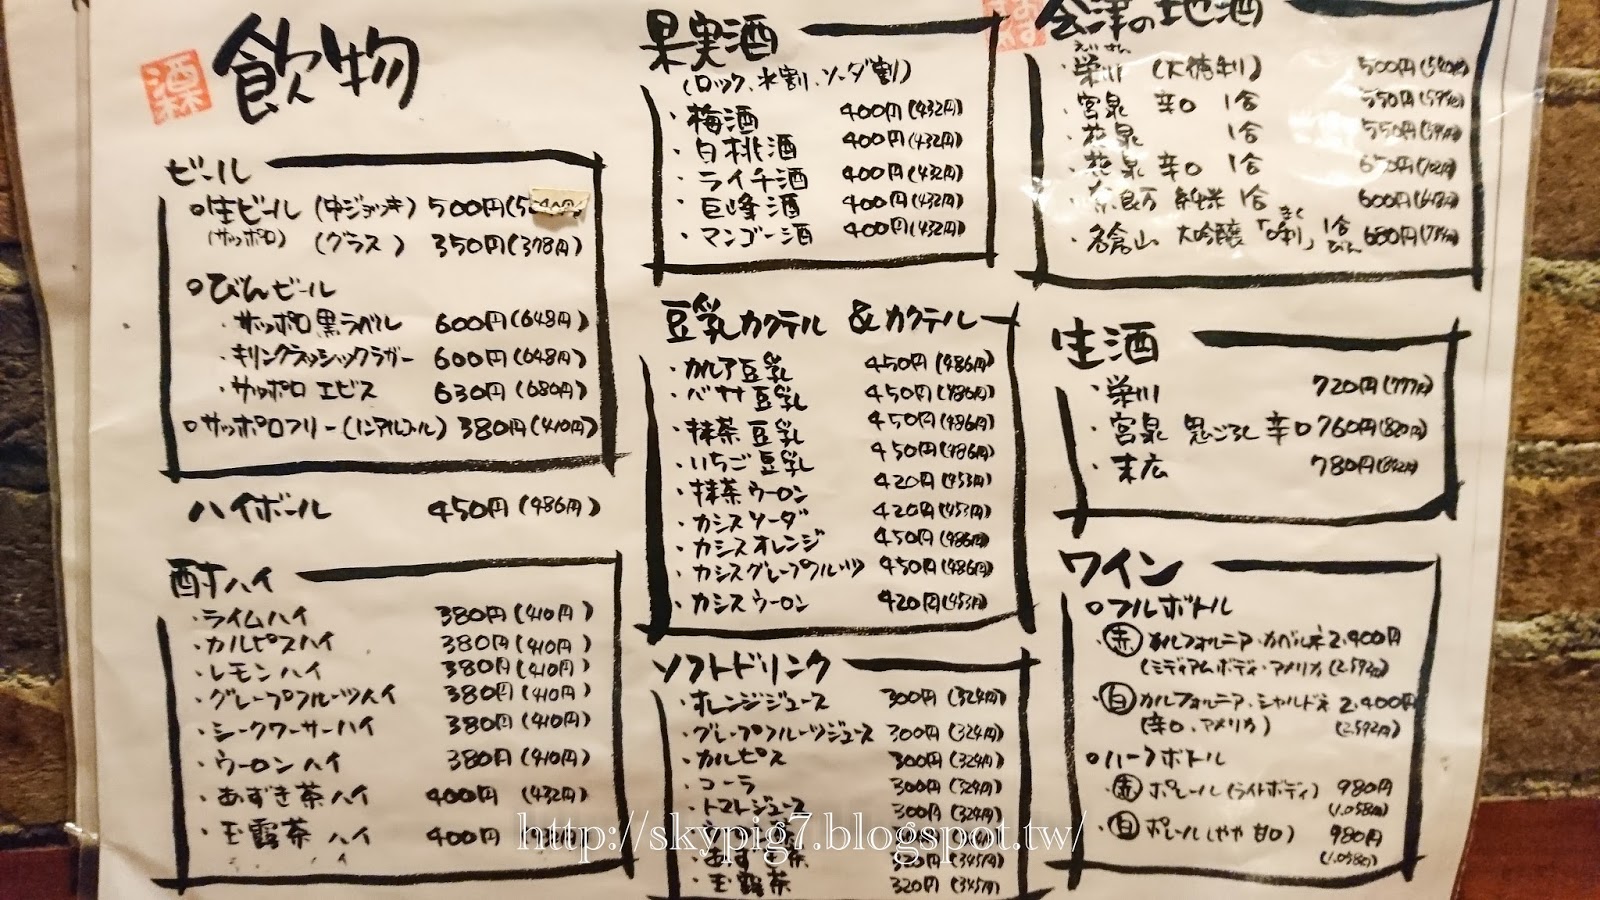 飲物
ビール
○生ビール (中ジョッキ) 500円(540円)
(サッポロ) (グラス) 350円(378円)
○びんビール
・サッポロ黒ラベル 600円(648円)
・キリンクラッシックラガー 600円(648円)
・サッポロ エビス 630円(680円)
○サッポロフリー(ノンアルコール) 380円(410円)
ハイボール 450円(486円)
酎ハイ
・ライムハイ 380円(410円)
・カルピスハイ 380円(410円)
・レモンハイ 380円(410円)
・グレープフルーツハイ 380円(410円)
・シークワーサーハイ 380円(410円)
・ウーロンハイ 380円(410円)
・あずき茶ハイ 400円 (432円)
・玉露茶ハイ 400円
果実酒
(ロック、水割、ソーダ割)
・梅酒 400円(432円)
・白桃酒 400円(432円)
・ライチ酒 400円(432円)
・巨峰酒 400円(432円)
・マンゴー酒 400円(432円)
豆乳カクテル &カクテル
・カルア豆乳 450円(486円)
・バナナ豆乳 450円(486円)
・抹茶豆乳 450円(486円)
・いちご豆乳 450円(486円)
・抹茶ウーロン 420円(453円)
・カシスソーダ 420円(453円)
・カシスオレンジ 450円(486円)
・カシスグレープフルーツ 450円(486円)
・カシスウーロン 420円(453円)
ソフトドリンク
・オレンジジュース 300円(324円)
・グレープフルーツジュース 300円(324円)
・カルピス 300円(324円)
・コーラ 300円(324円)
・トマトジュース 300円(324円)
・あずき茶 320円(345円)
・玉露茶 320円(345円)
会津の地酒
えいせん
・栄川 (大徳利) 500円(540円)
・宮泉 辛口 1合 550円(594円)
・花泉 1合 550円(594円)
・花泉 辛口 1合 650円(702円)
・奈良万 純米 1合 600円(648円)
・名倉山 大吟醸「きく」 1合びん 680円
生酒
・栄川 720円(777円)
・宮泉 鬼ごろし 辛口 760円(820円)
・末広 780円(842円)
ワイン
○フルボトル
・赤 カルフォルニア・カベルネ 2,400円
(ミディアムボディ・アメリカ) (2,592円)
・白 カルフォルニア・シャルドネ 2,400円
(辛口、アメリカ) (2,592円)
○ハーフボトル
・赤 ポレール(ライトボディ) 980円
(1,058円)
・白 ポレール(やや甘口) 980円
(1,058円)
http://skypig7.blogspot.tw/